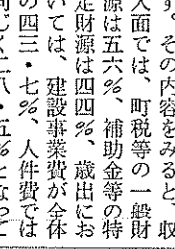 す。その内容をみると、収
入面では、町税等の一般財
源は五六％、補助金等の特
定財源は四四％、歳出にお
いては、建設事業費が全体
の四三・七％、人件費では
同じく二八・五％となって